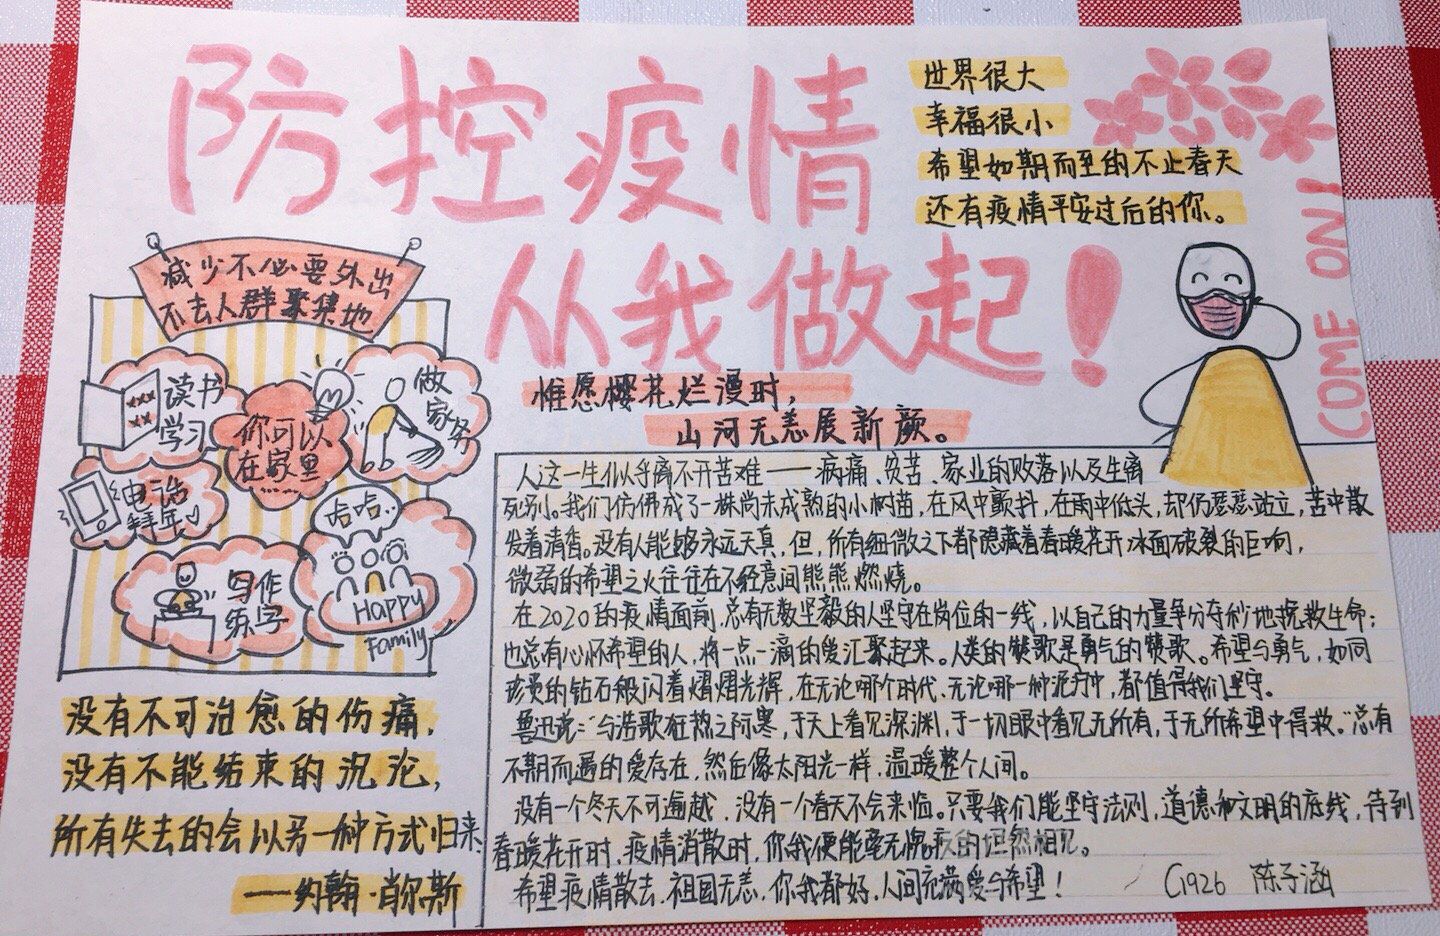 防控疫情
从我做起！
世界很大
幸福很小
希望如期而至的不止春天
还有疫情平安过后的你。
COME ON！
减少不必要外出
不去人群聚集地
读书
学习
你可以
在家里
做
家务
电话
拜年
哈哈..
写作
练字
Happy
Family
惟愿樱花烂漫时，
山河无恙展新颜。
没有不可治愈的伤痛，
没有不能结束的沉沦，
所有失去的会以另一种方式归来.
——约翰·肖尔斯
人这一生似乎离不开苦难——病痛、贫苦、家业的败落以及生离
死别。我们仿佛成了一株尚未成熟的小树苗，在风中颤抖，在雨中低头，却仍瑟瑟站立，苦中散
发着清香。没有人能够永远天真，但，所有细微之下都隐藏着春暖花开冰面破裂的巨响，
微弱的希望之火往往在不经意间熊熊燃烧。
在2020的疫情面前，总有无数坚毅的人坚守在岗位的一线，以自己的力量争分夺秒地挽救生命；
也总有心怀希望的人，将一点一滴的爱汇聚起来。人类的赞歌是勇气的赞歌。希望与勇气，如同
珍贵的钻石般闪着熠熠光辉，在无论哪个时代、无论哪一种泥泞中，都值得我们坚守。
鲁迅说：“与浩歌狂热之际寒，于天上看见深渊，于一切眼中看见无所有，于无所希望中得救。”总有
不期而遇的爱存在，然后像太阳光一样，温暖整个人间。
没有一个冬天不可逾越，没有一个春天不会来临。只要我们能坚守法则，道德和文明的底线，待到
春暖花开时，疫情消散时，你我便能毫无愧疚的坦然相见。
希望疫情散去，祖国无恙，你我都好，人间充满爱与希望！
C1926 陈子涵